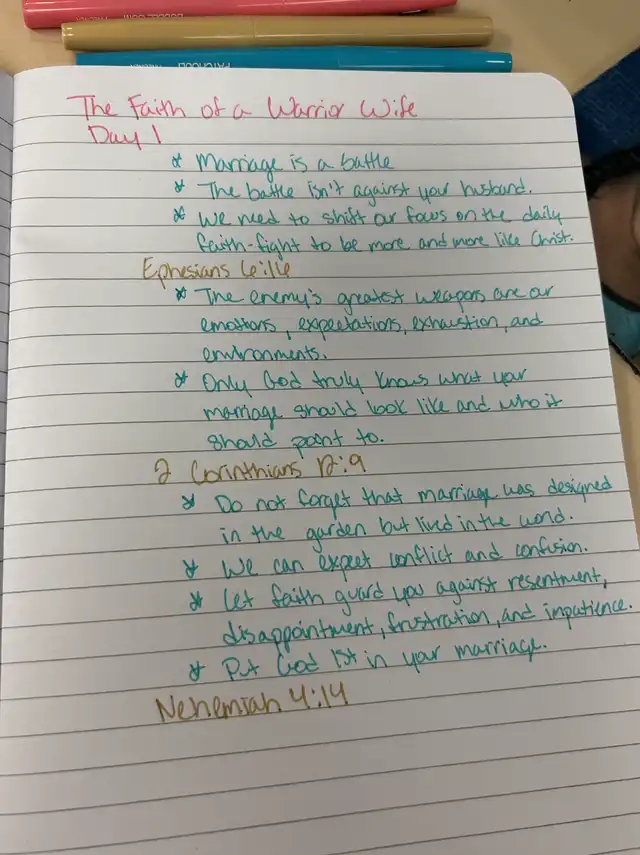 The Faith of a Warrior Wife
Day 1
* Marriage is a battle
* The battle isn't against your husband.
* We need to shift our focus on the daily
faith-fight to be more and more like Christ.
Ephesians 6:16
* The enemy's greatest weapons are our
emotions, expectations, exhaustion, and
environments.
* Only God truly knows what your
marriage should look like and who it
should point to.
2 Corinthians 12:9
* Do not forget that marriage was designed
in the garden but lived in the world.
* We can expect conflict and confusion.
* Let faith guard you against resentment,
disappointment, frustration, and inpatience.
* Put God 1st in your marriage.
Nehemiah 4:14